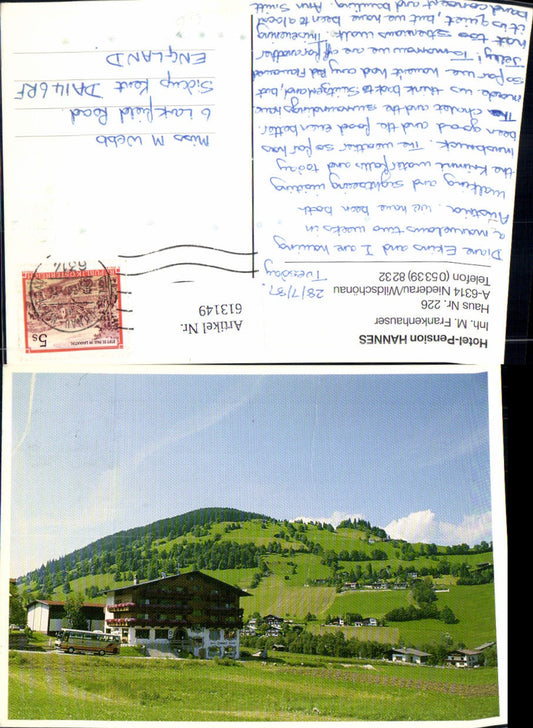 Hotel-Pension HANNES
Inh. M. Frankenhauser
Haus Nr. 226
A-6314 Niederau/Wildschönau
Telefon (05339) 8232
Artikel Nr.
613149
28/7/87.
Tuesday
Diane Ekins and I are having
a marvelous two weeks in
Austria. We have been both
walking and sightseeing visiting
the Krimml waterfalls and today
Innsbruck. The weather so far has
been good and the food even better.
The chalet and the surroundings have
made us think back to Switzerland, but
so far we haven't had any Red Flannered
Jelly! Tomorrow we are off for another
not too strenuous walk. The evening
it is quiet, but we have been to a local
band concert and bowling. Ann Smith
Miss M Webb
6 Larkfield Road
Sidcup Kent DA14 6RF
ENGLAND
6314
REPUBLIK ÖSTERREICH
STIFT ST. PAUL IM LAVANTTAL
5s